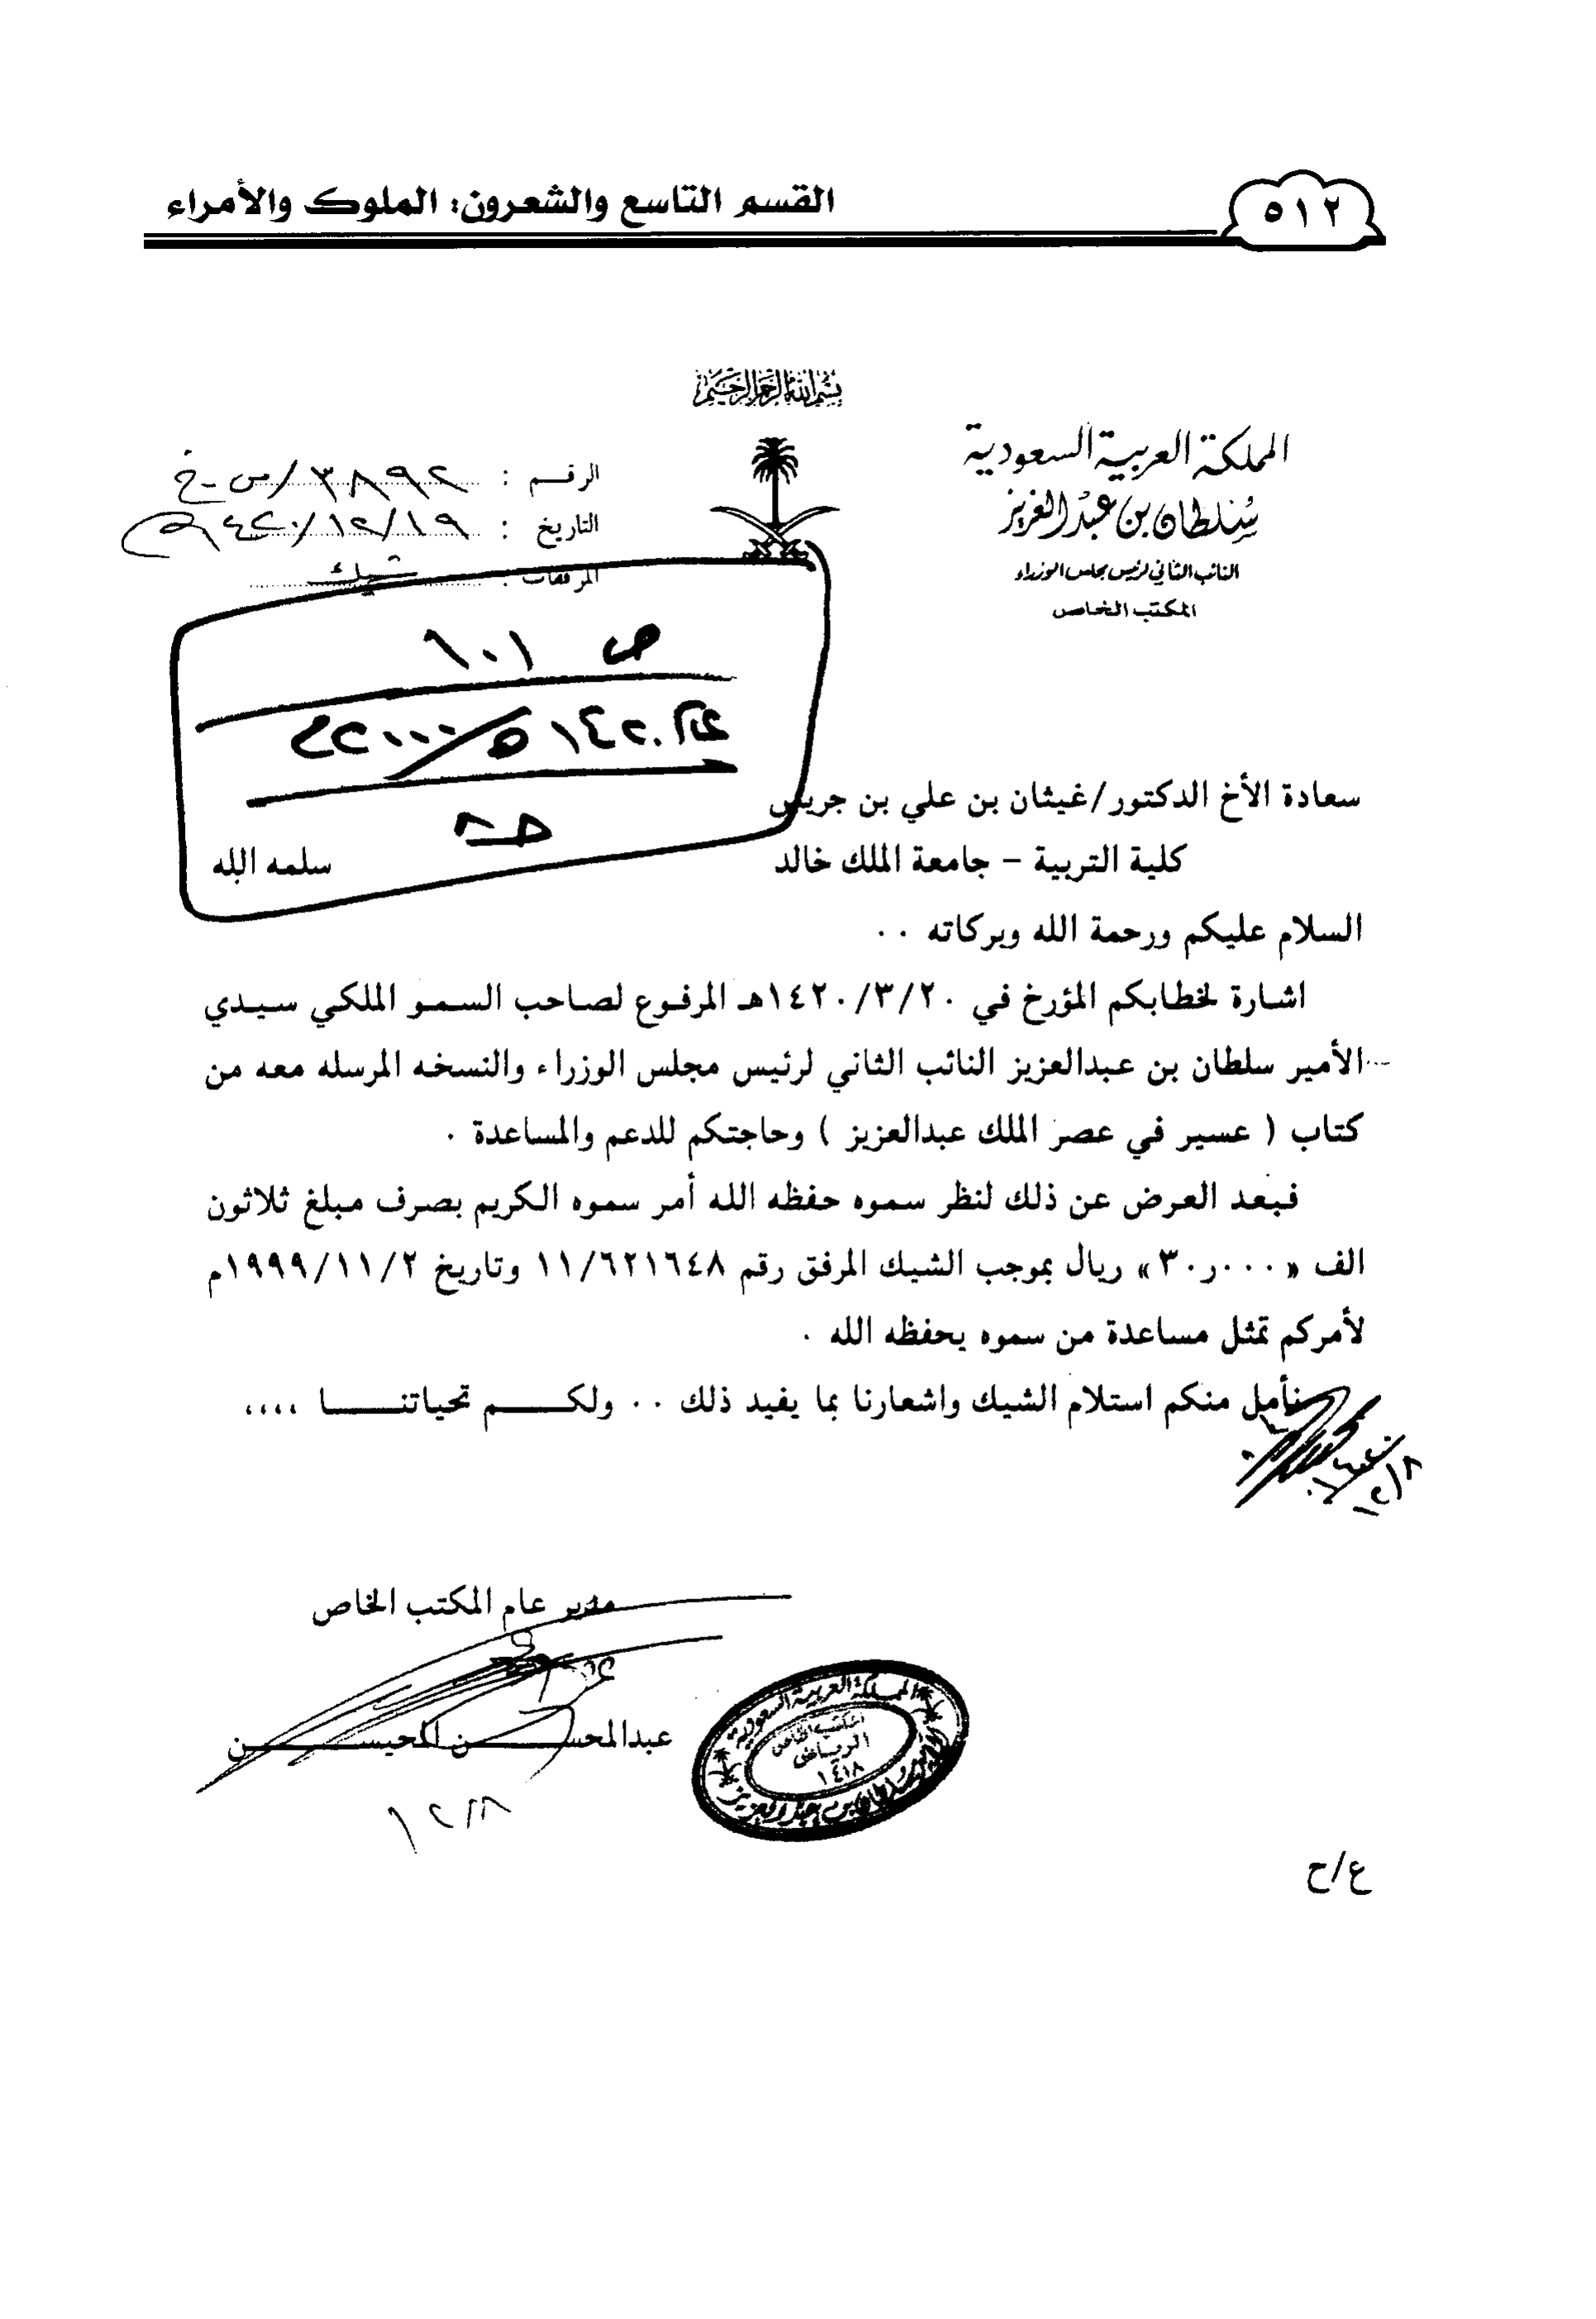 ٥١٢
القسم التاسع والشعرون: الملوك والأمراء
بسم الله الرحمن الرحيم
المملكة العربية السعودية
سلطان بن عبد العزيز
النائب الثاني لرئيس مجلس الوزراء
المكتب الخاص
الرقم : ٣٨٩٢/ص-خ
التاريخ : ١٩/١٢/١٤٢٠هـ
المرفقات : شيك
ص ١٠١
سعادة الأخ الدكتور/غيثان بن علي بن جريس
كلية التربية - جامعة الملك خالد سلمه الله
السلام عليكم ورحمة الله وبركاته ..
اشارة لخطابكم المؤرخ في ١٤٢٠/٣/٢٠هـ المرفوع لصاحب السمو الملكي سيدي
الأمير سلطان بن عبدالعزيز النائب الثاني لرئيس مجلس الوزراء والنسخه المرسله معه من
كتاب ( عسير في عصر الملك عبدالعزيز ) وحاجتكم للدعم والمساعدة .
فبعد العرض عن ذلك لنظر سموه حفظه الله أمر سموه الكريم بصرف مبلغ ثلاثون
الف «٣٠ر٠٠٠» ريال بموجب الشيك المرفق رقم ١١/٦٢١٦٤٨ وتاريخ ١٩٩٩/١١/٢م
لأمركم تمثل مساعدة من سموه يحفظه الله .
نأمل منكم استلام الشيك واشعارنا بما يفيد ذلك .. ولكـــــم تحياتنـــــا ،،،،
مدير عام المكتب الخاص
عبدالمحســـــن المحيســـــن
١٢/٨
المملكة العربية السعودية
المكتب الخاص
الرياض
١٤١٨
الأمير سلطان بن عبد العزيز
ع/ح